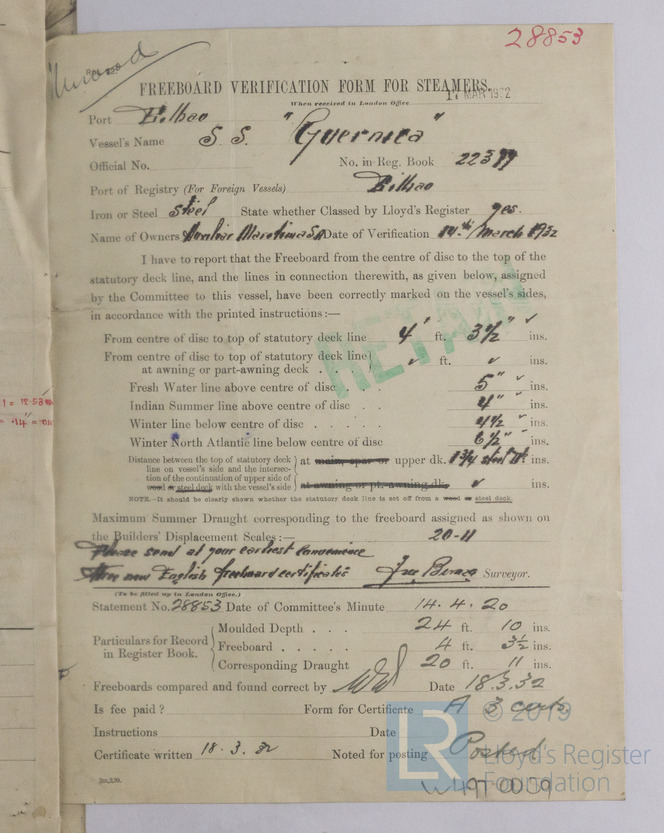 28853
FREEBOARD VERIFICATION FORM FOR STEAMERS.
When received in London Office 17 MAR 1932
Port Bilbao
Vessel's Name S.S. "Guernica"
Official No. No. in Reg. Book 22377
Port of Registry (For Foreign Vessels) Bilbao
Iron or Steel Steel State whether Classed by Lloyd's Register yes.
Name of Owners Auxiliar Maritima SA Date of Verification 14th March 1932
I have to report that the Freeboard from the centre of disc to the top of the
statutory deck line, and the lines in connection therewith, as given below, assigned
by the Committee to this vessel, have been correctly marked on the vessel's sides,
in accordance with the printed instructions :—
RETAIN
From centre of disc to top of statutory deck line 4' ft. 3½" ✓ ins.
From centre of disc to top of statutory deck line
at awning or part-awning deck . . . ✓ ft. ✓ ins.
Fresh Water line above centre of disc . . 5" ✓ ins.
Indian Summer line above centre of disc . . 4" ✓ ins.
Winter line below centre of disc . . . . . 4½" ✓ ins.
Winter North Atlantic line below centre of disc 6½" ✓ ins.
Distance between the top of statutory deck
line on vessel's side and the intersec-
tion of the continuation of upper side of
wood or steel deck with the vessel's side
at main, spar or upper dk. 1¾ steel dk ins.
at awning or pt. awning dk. ✓ ins.
NOTE.—It should be clearly shown whether the statutory deck line is set off from a wood or steel deck.
Maximum Summer Draught corresponding to the freeboard assigned as shown on
the Builders' Displacement Scales :— 20-11
Please send at your earliest convenience
three new English freeboard certificates Surveyor.
(To be filled up in London Office.)
Statement No. 28853 Date of Committee's Minute 14.4.20
Particulars for Record
in Register Book.
Moulded Depth . . . 24 ft. 10 ins.
Freeboard . . . . . 4 ft. 3½ ins.
Corresponding Draught 20 ft. 11 ins.
Freeboards compared and found correct by Date 18.3.32
Is fee paid ? Form for Certificate A 3 certs.
Instructions Date
Certificate written 18.3.32 Noted for posting Posted
© 2019
LR
Lloyd's Register
Foundation
W497-0059